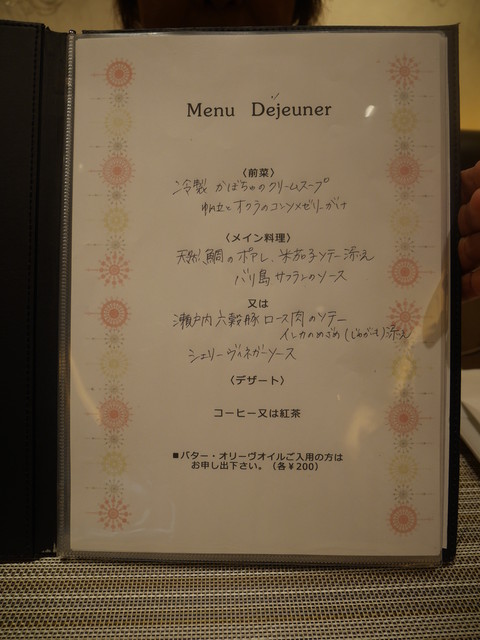 Menu Dejeuner
〈前菜〉
冷製 かぼちゃのクリームスープ
帆立とオクラのコンソメゼリーがけ
〈メイン料理〉
天然 鯛のポアレ、米茄子ソテー添え
バリ島 サフランのソース
又は
瀬戸内六穀豚ロース肉のソテー
インカのめざめ(じゃがいも)添え
シェリーヴィネガーソース
〈デザート〉
コーヒー又は紅茶
■バター・オリーヴオイルご入用の方は
お申し出下さい。（各¥200）